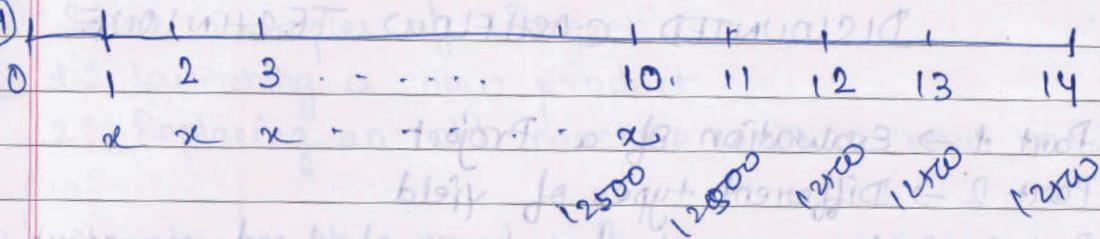 1)
0 1 2 3 . . . . . . 10. 11 12 13 14
x x x . . . . . . x
12500 12500 12500 12500 12500